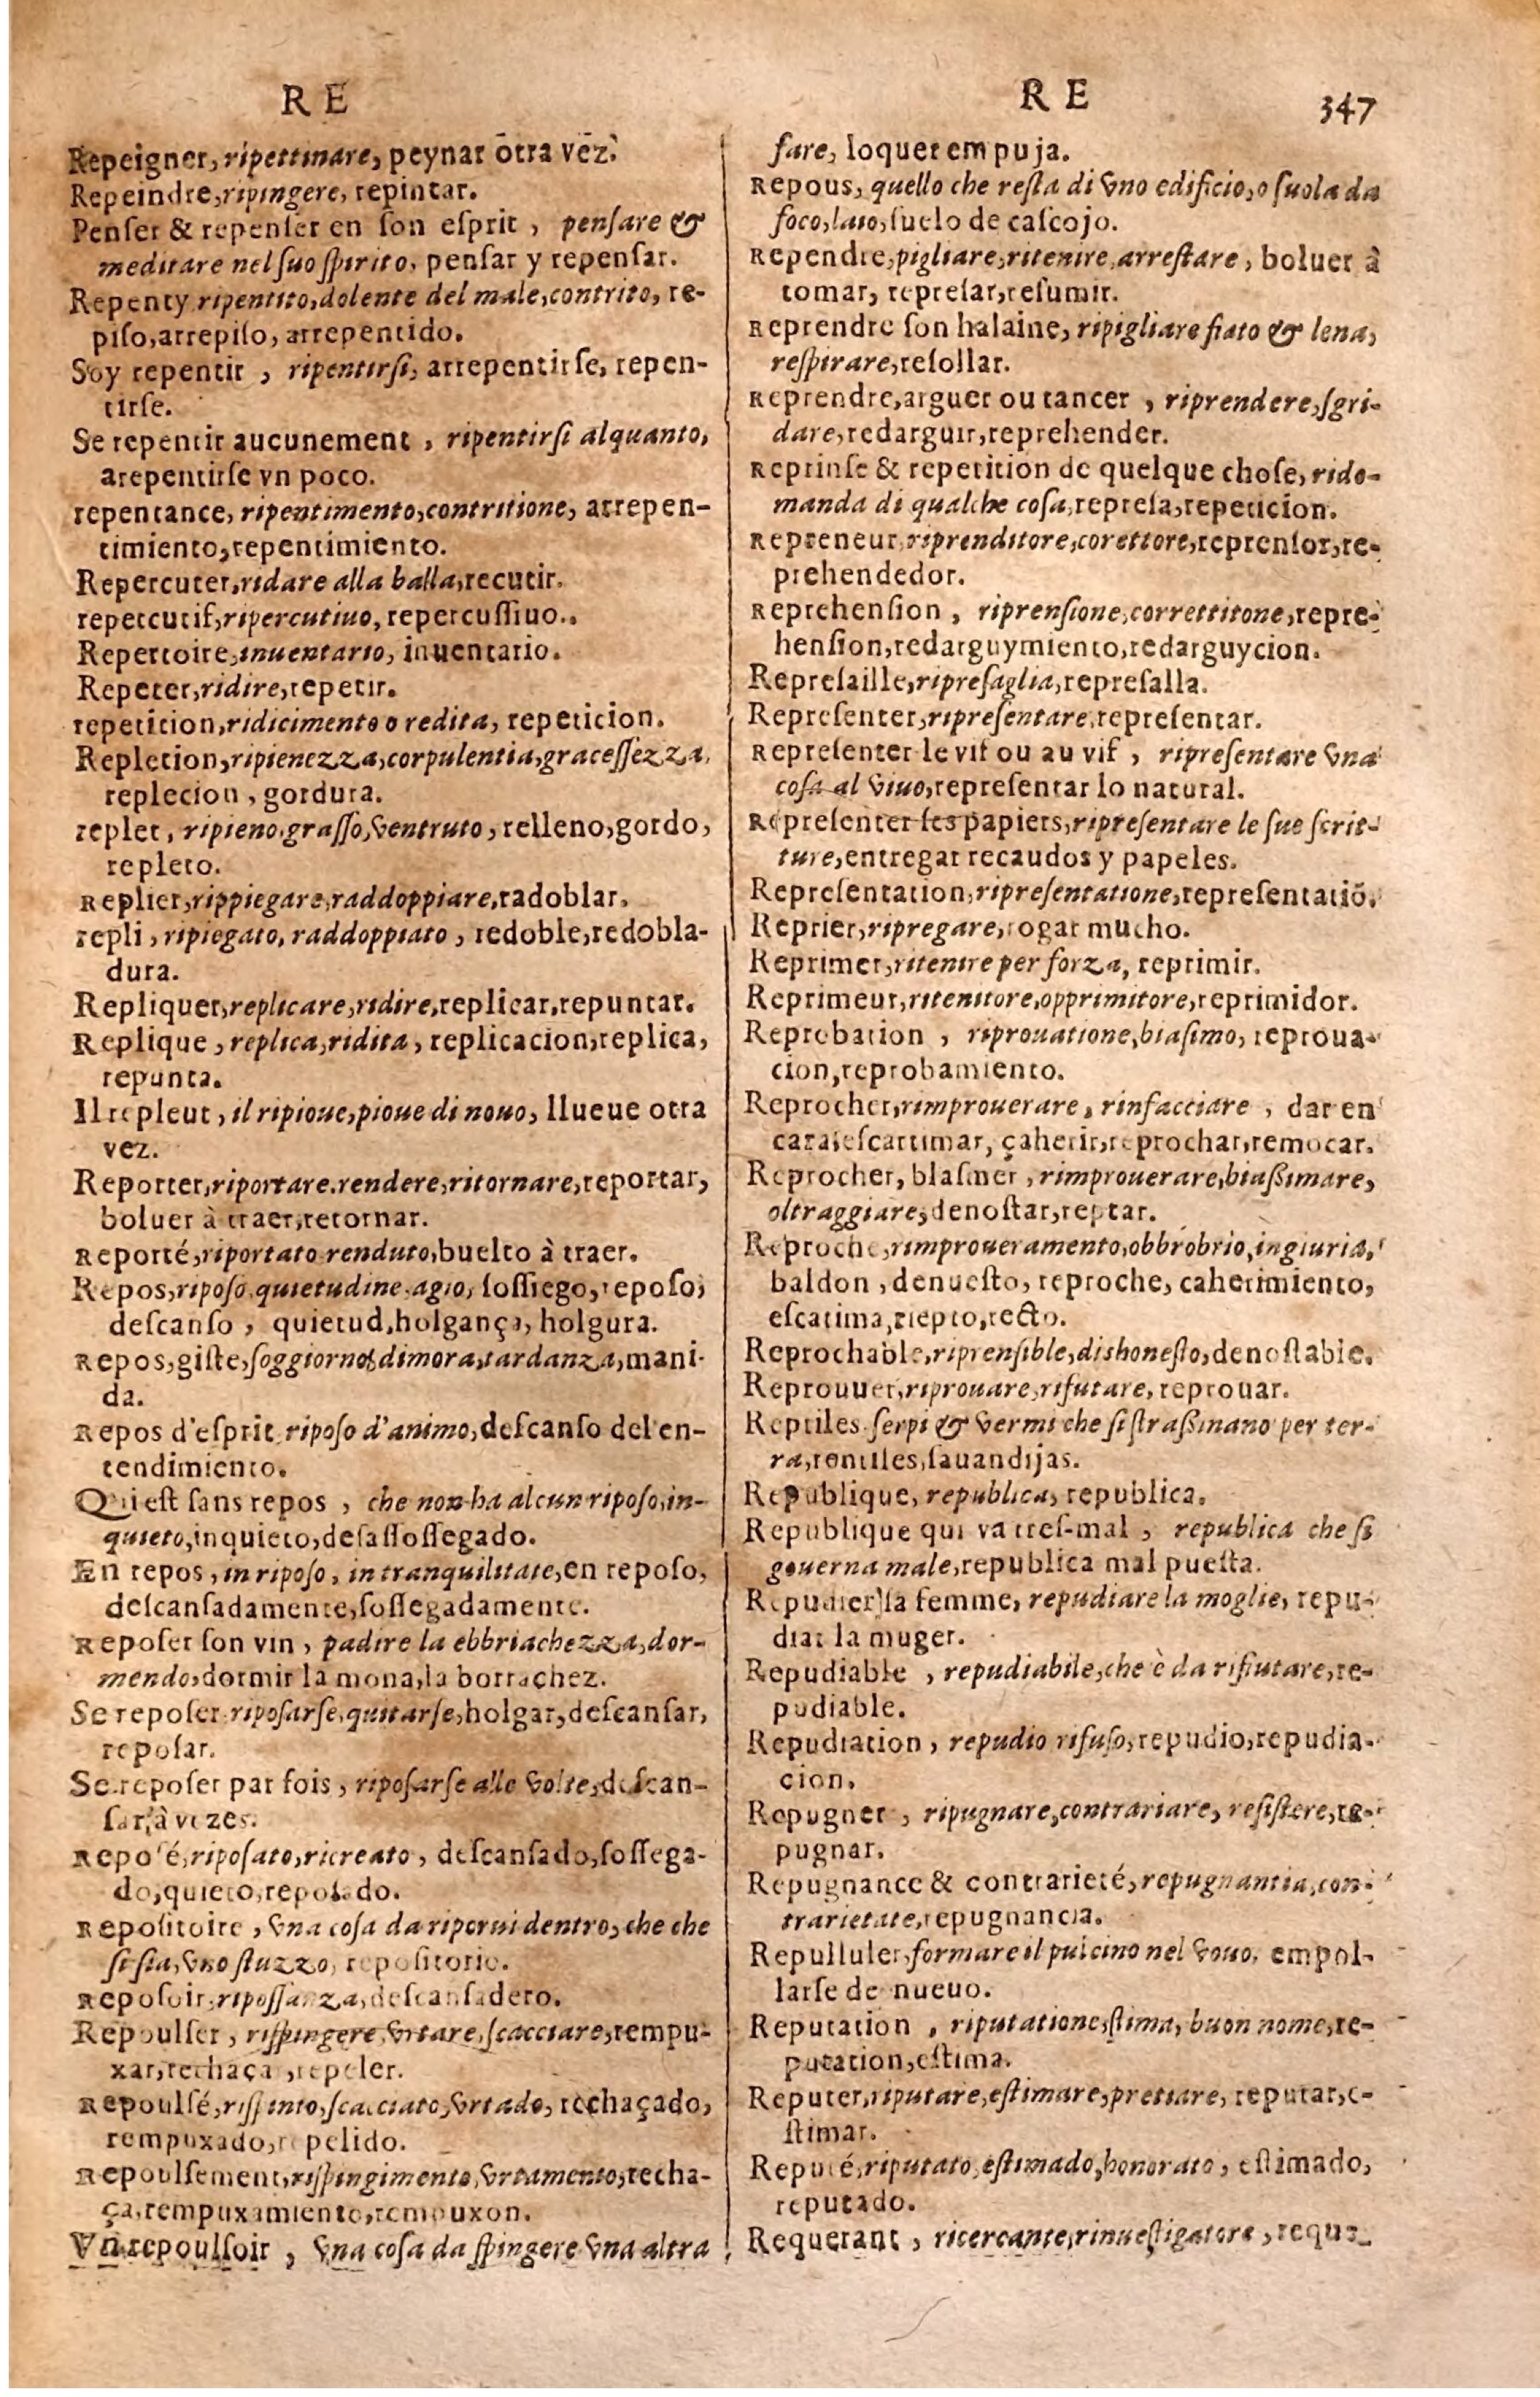 RE
Repeigner, ripettinare, peynar ōtra vēz.
Repeindre, ripingere, repintar.
Penſer & repenſer en ſon eſprit, penſare &
meditare nel ſuo ſpirito, penſar y repenſar.
Repenty ripentito, dolente del male, contrito, re-
piſo, arrepiſo, arrepentido.
Soy repentir, ripentirſi, arrepentirſe, repen-
tirſe.
Se repentir aucunement, ripentirſi alquanto,
arepentirſe vn poco.
repentance, ripentimento, contritione, arrepen-
timiento, repentimiento.
Repercuter, ridare alla balla, recutir.
repercutif, ripercutiuo, repercuſſiuo.
Repertoire, inuentario, inuentario.
Repeter, ridire, repetir.
repetition, ridicimento o redita, repeticion.
Repletion, ripienezza, corpulentia, graceſſezza,
replecion, gordura.
replet, ripieno, graſſo, ventruto, relleno, gordo,
repleto.
Replier, rippiegare, raddoppiare, radoblar.
repli, ripiegato, raddoppiato, redoble, redobla-
dura.
Repliquer, replicare, ridire, replicar, repuntar.
Replique, replica, ridita, replicacion, replica,
repunta.
Il repleut, il ripioue, pioue di nouo, llueue otra
vez.
Reporter, riportare, rendere, ritornare, reportar,
boluer à traer, retornar.
Reporté, riportato renduto, buelto à traer.
Repos, ripoſo, quietudine, agio, ſoſſiego, repoſo,
deſcanſo, quietud, holgança, holgura.
Repos, giſte, ſoggiorno, dimora, tardanza, mani-
da.
Repos d'eſprit, ripoſo d'animo, deſcanſo del en-
tendimiento.
Qui eſt ſans repos, che non ha alcun ripoſo, in-
quieto, inquieto, deſaſſoſſegado.
En repos, in ripoſo, in tranquilitate, en repoſo,
deſcanſadamente, ſoſſegadamente.
Repoſer ſon vin, padire la ebbriachezza, dor-
mendo, dormir la mona, la borrachez.
Se repoſer, ripoſarſe, quitarſe, holgar, deſcanſar,
repoſar.
Se repoſer par fois, ripoſarſe alle volte, deſcan-
ſar, à vezes.
Repoſé, ripoſato, ricreato, deſcanſado, ſoſſega-
do, quieto, repoſado.
Repoſitoire, vna coſa da riporui dentro, che che
ſi ſia, vno ſtuzzo, repoſitorio.
Repoſoir, ripoſſanza, deſcanſadero.
Repoulſer, riſpingere, vrtare, ſcacciare, rempu-
xar, rechaça, repeler.
Repoulſé, riſpinto, ſcacciato, vrtado, rechaçado,
rempuxado, repelido.
Repoulſement, riſpingimento, vrtamento, recha-
ça, rempuxamiento, rempuxon.
Vn repoulſoir, vna coſa da ſpingere vna altra
RE 347
fare, loquer empuja.
Repous, quello che reſta di vno edificio, o ſuola da
foco, laio, ſuelo de caſcojo.
Rependre, pigliare, ritenire, arreſtare, boluer à
tomar, repreſar, reſumir.
Reprendre ſon halaine, ripigliare fiato & lena,
reſpirare, reſollar.
Reprendre, arguer ou tancer, riprendere, ſgri-
dare, redarguir, reprehender.
Reprinſe & repetition de quelque choſe, rido-
manda di qualche coſa, repreſa, repeticion.
Repreneur, riprenditore, corettore, reprenſor, re-
prehendedor.
Reprehenſion, riprenſione, correttitone, repre-
henſion, redarguymiento, redarguycion.
Repreſaille, ripreſaglia, repreſalla.
Repreſenter, ripreſentare, repreſentar.
Repreſenter le vif ou au vif, ripreſentare vna
coſa al viuo, repreſentar lo natural.
Repreſenter ſes papiers, ripreſentare le ſue ſcrit-
ture, entregar recaudos y papeles.
Repreſentation, ripreſentatione, repreſentatiō.
Reprier, ripregare, rogar mucho.
Reprimer, ritenire per forza, reprimir.
Reprimeur, ritenitore, opprimitore, reprimidor.
Reprobation, riprouatione, biaſimo, reproua-
cion, reprobamiento.
Reprocher, rimprouerare, rinfacciare, dar en
cara, eſcartimar, çaherir, reprochar, remocar.
Reprocher, blaſmer, rimprouerare, biaßimare,
oltraggiare, denoſtar, reptar.
Reproche, rimproueramento, obbrobrio, ingiuria,
baldon, denueſto, reproche, caherimiento,
eſcatima, riepto, recto.
Reprochable, riprenſible, dishoneſto, denoſtable.
Reprouuer, riprouare, rifutare, reprouar.
Reptiles ſerpi & vermi che ſi ſtraßinano per ter-
ra, ſauandijas.
Republique, republica, republica.
Republique qui va treſ-mal, republica che ſi
gouerna male, republica mal pueſta.
Repudier la femme, repudiare la moglie, repu-
diar la muger.
Repudiable, repudiabile, che è da rifiutare, re-
pudiable.
Repudiation, repudio rifuſo, repudio, repudia-
cion.
Repugner, ripugnare, contrariare, reſiſtere, re-
pugnar.
Repugnance & contrarieté, repugnantia, con-
trarietate, repugnancia.
Repulluler, formare il pulcino nel vouo, empol-
larſe de nueuo.
Reputation, riputatione, ſtima, buon nome, re-
putation, eſtima.
Reputer, riputare, eſtimare, pretiare, reputar, e-
ſtimar.
Reputé, riputato, eſtimado, honorato, eſtimado,
reputado.
Requerant, ricercante, rinueſtigatore, reque-